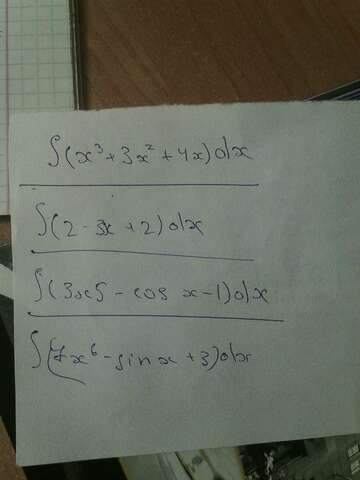 ∫(x³+3x²+4x)dx
∫(2-3x+2)dx
∫(3x5-cos x-1)dx
∫(7x⁶-sinx+3)dx